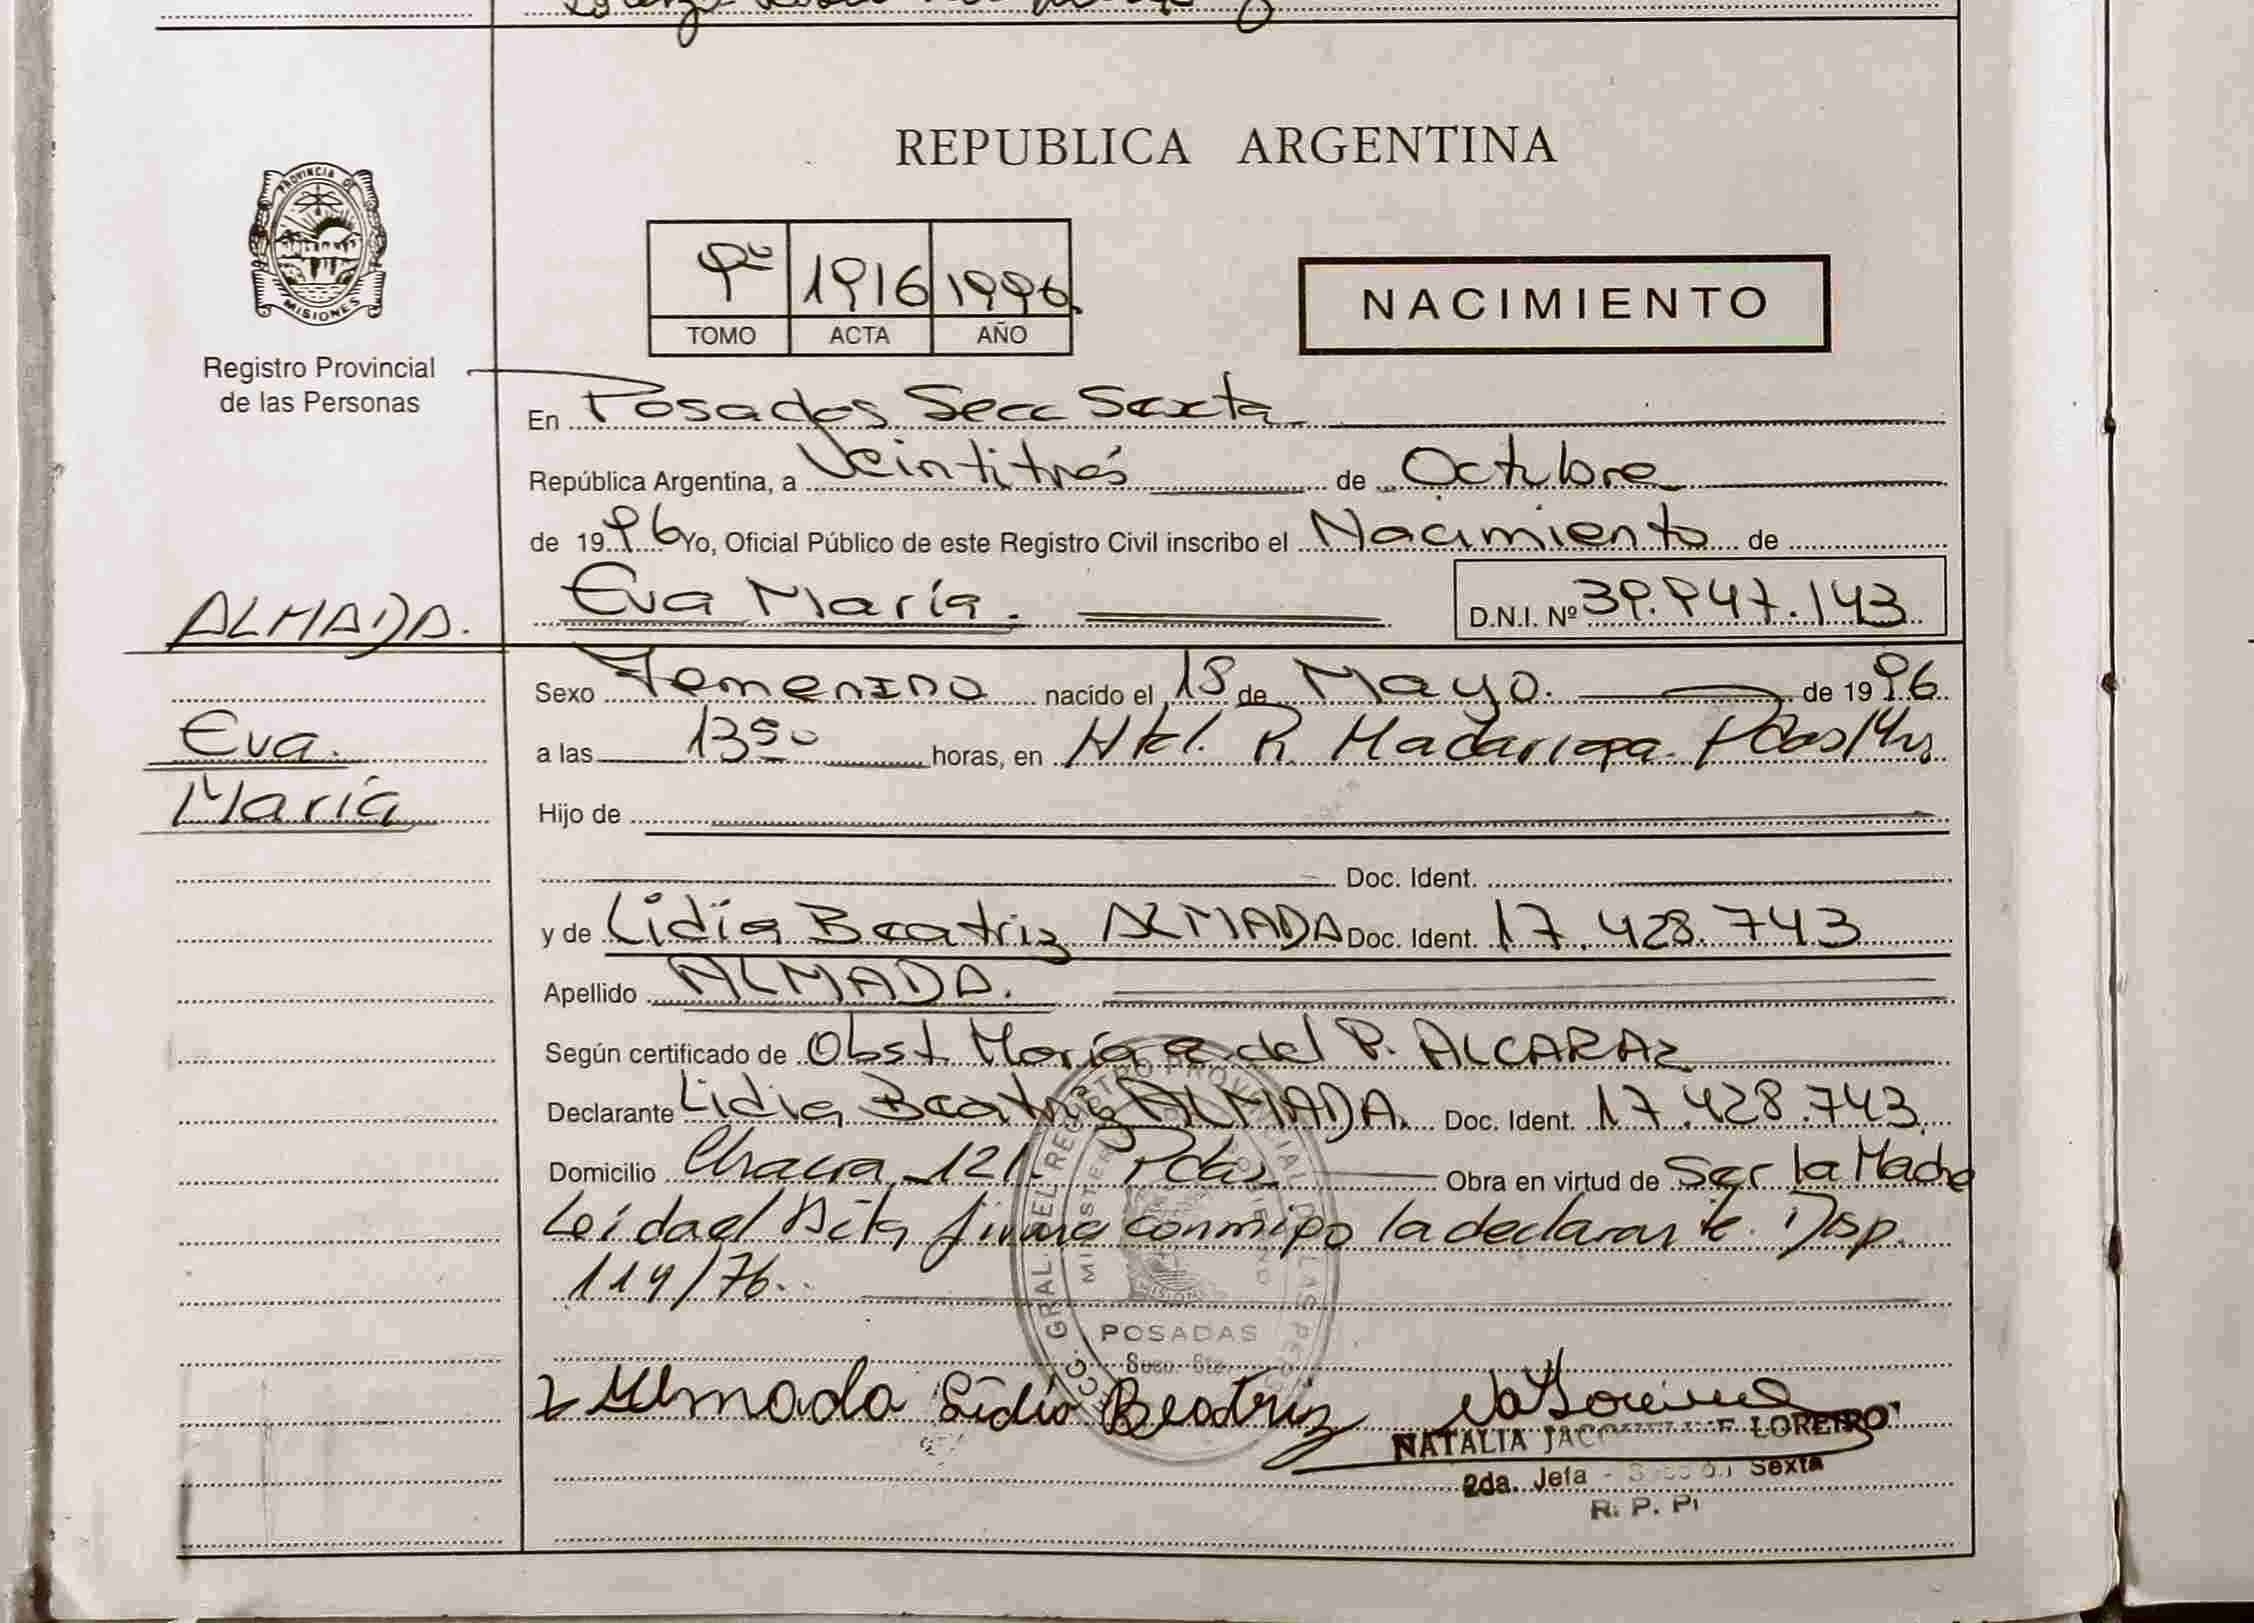 REPUBLICA ARGENTINA
PROVINCIA DE
MISIONES
Registro Provincial
de las Personas
9º 1916 1996.
TOMO ACTA AÑO
NACIMIENTO
En Posadas Secc Sexta
República Argentina, a Veintitrés de Octubre
de 1996 Yo, Oficial Público de este Registro Civil inscribo el Nacimiento de
ALMADA.
Eva María. D.N.I. Nº 39.947.143
Sexo Femenino nacido el 18 de Mayo. de 1996
Eva
María
a las 13 50 horas, en Htal. R. Madariaga. Pdas/Mns
Hijo de
Doc. Ident.
y de Lidia Beatriz ALMADA Doc. Ident. 17.428.743
Apellido ALMADA.
Según certificado de Obst. María del P. ALCARAZ
Declarante Lidia Beatriz ALMADA. Doc. Ident. 17.428.743
Domicilio Chacra 121. Pdas Obra en virtud de Ser la Madre
Leida el Acta firma conmigo la declarante. Disp.
114/76.
POSADAS
Almada Lidia Beatriz
NATALIA LOREIRO
2da. Jefa - Sección Sexta
R. P. P.